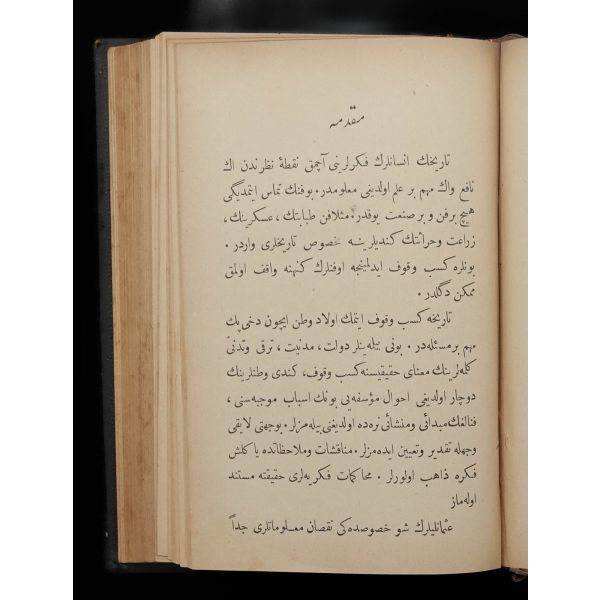 مقدمه
تاريخك انسانلرك فكرلرينى آچمق نقطهٔ نظرندن اك
نافع واك مهم بر علم اولديغى معلومدر. بوفنك تماس ايتمديگى
هيچ برفن و بر صنعت يوقدر. مثلا فن طبابتك، عسكرينك،
زراعت وحراثتك كنديلرينه مخصوص تاريخلرى واردر.
بونلره كسب وقوف ايدلمينجه اوفنلرك كنهنه واقف اولمق
ممكن دگلدر.
تاريخه كسب وقوف ايتمك اولاد وطن ايچون دخى پك
مهم بر مسئله در. بونى بيله ينلر دولت، مدنيت، ترقى وتدنى
كله لرينك معناى حقيقيسنه كسب وقوف، كندى وطنلرينك
دوچار اولديغى احوال مؤسفه يى بونك اسباب موجبه سنى،
فنالغك مبدائى ومنشائى نره ده اولديغنى بيله مزلر. بوجهتى لايقى
وجهله تقدير وتعيين ايده مزلر. مناقشات وملاحظاتده ياكلش
فكره ذاهب اولورلر. محاكمات فكريه لرى حقيقته مستند
اوله ماز
عثمانليلرك شو خصوصده كى نقصان معلوماتلرى جداً